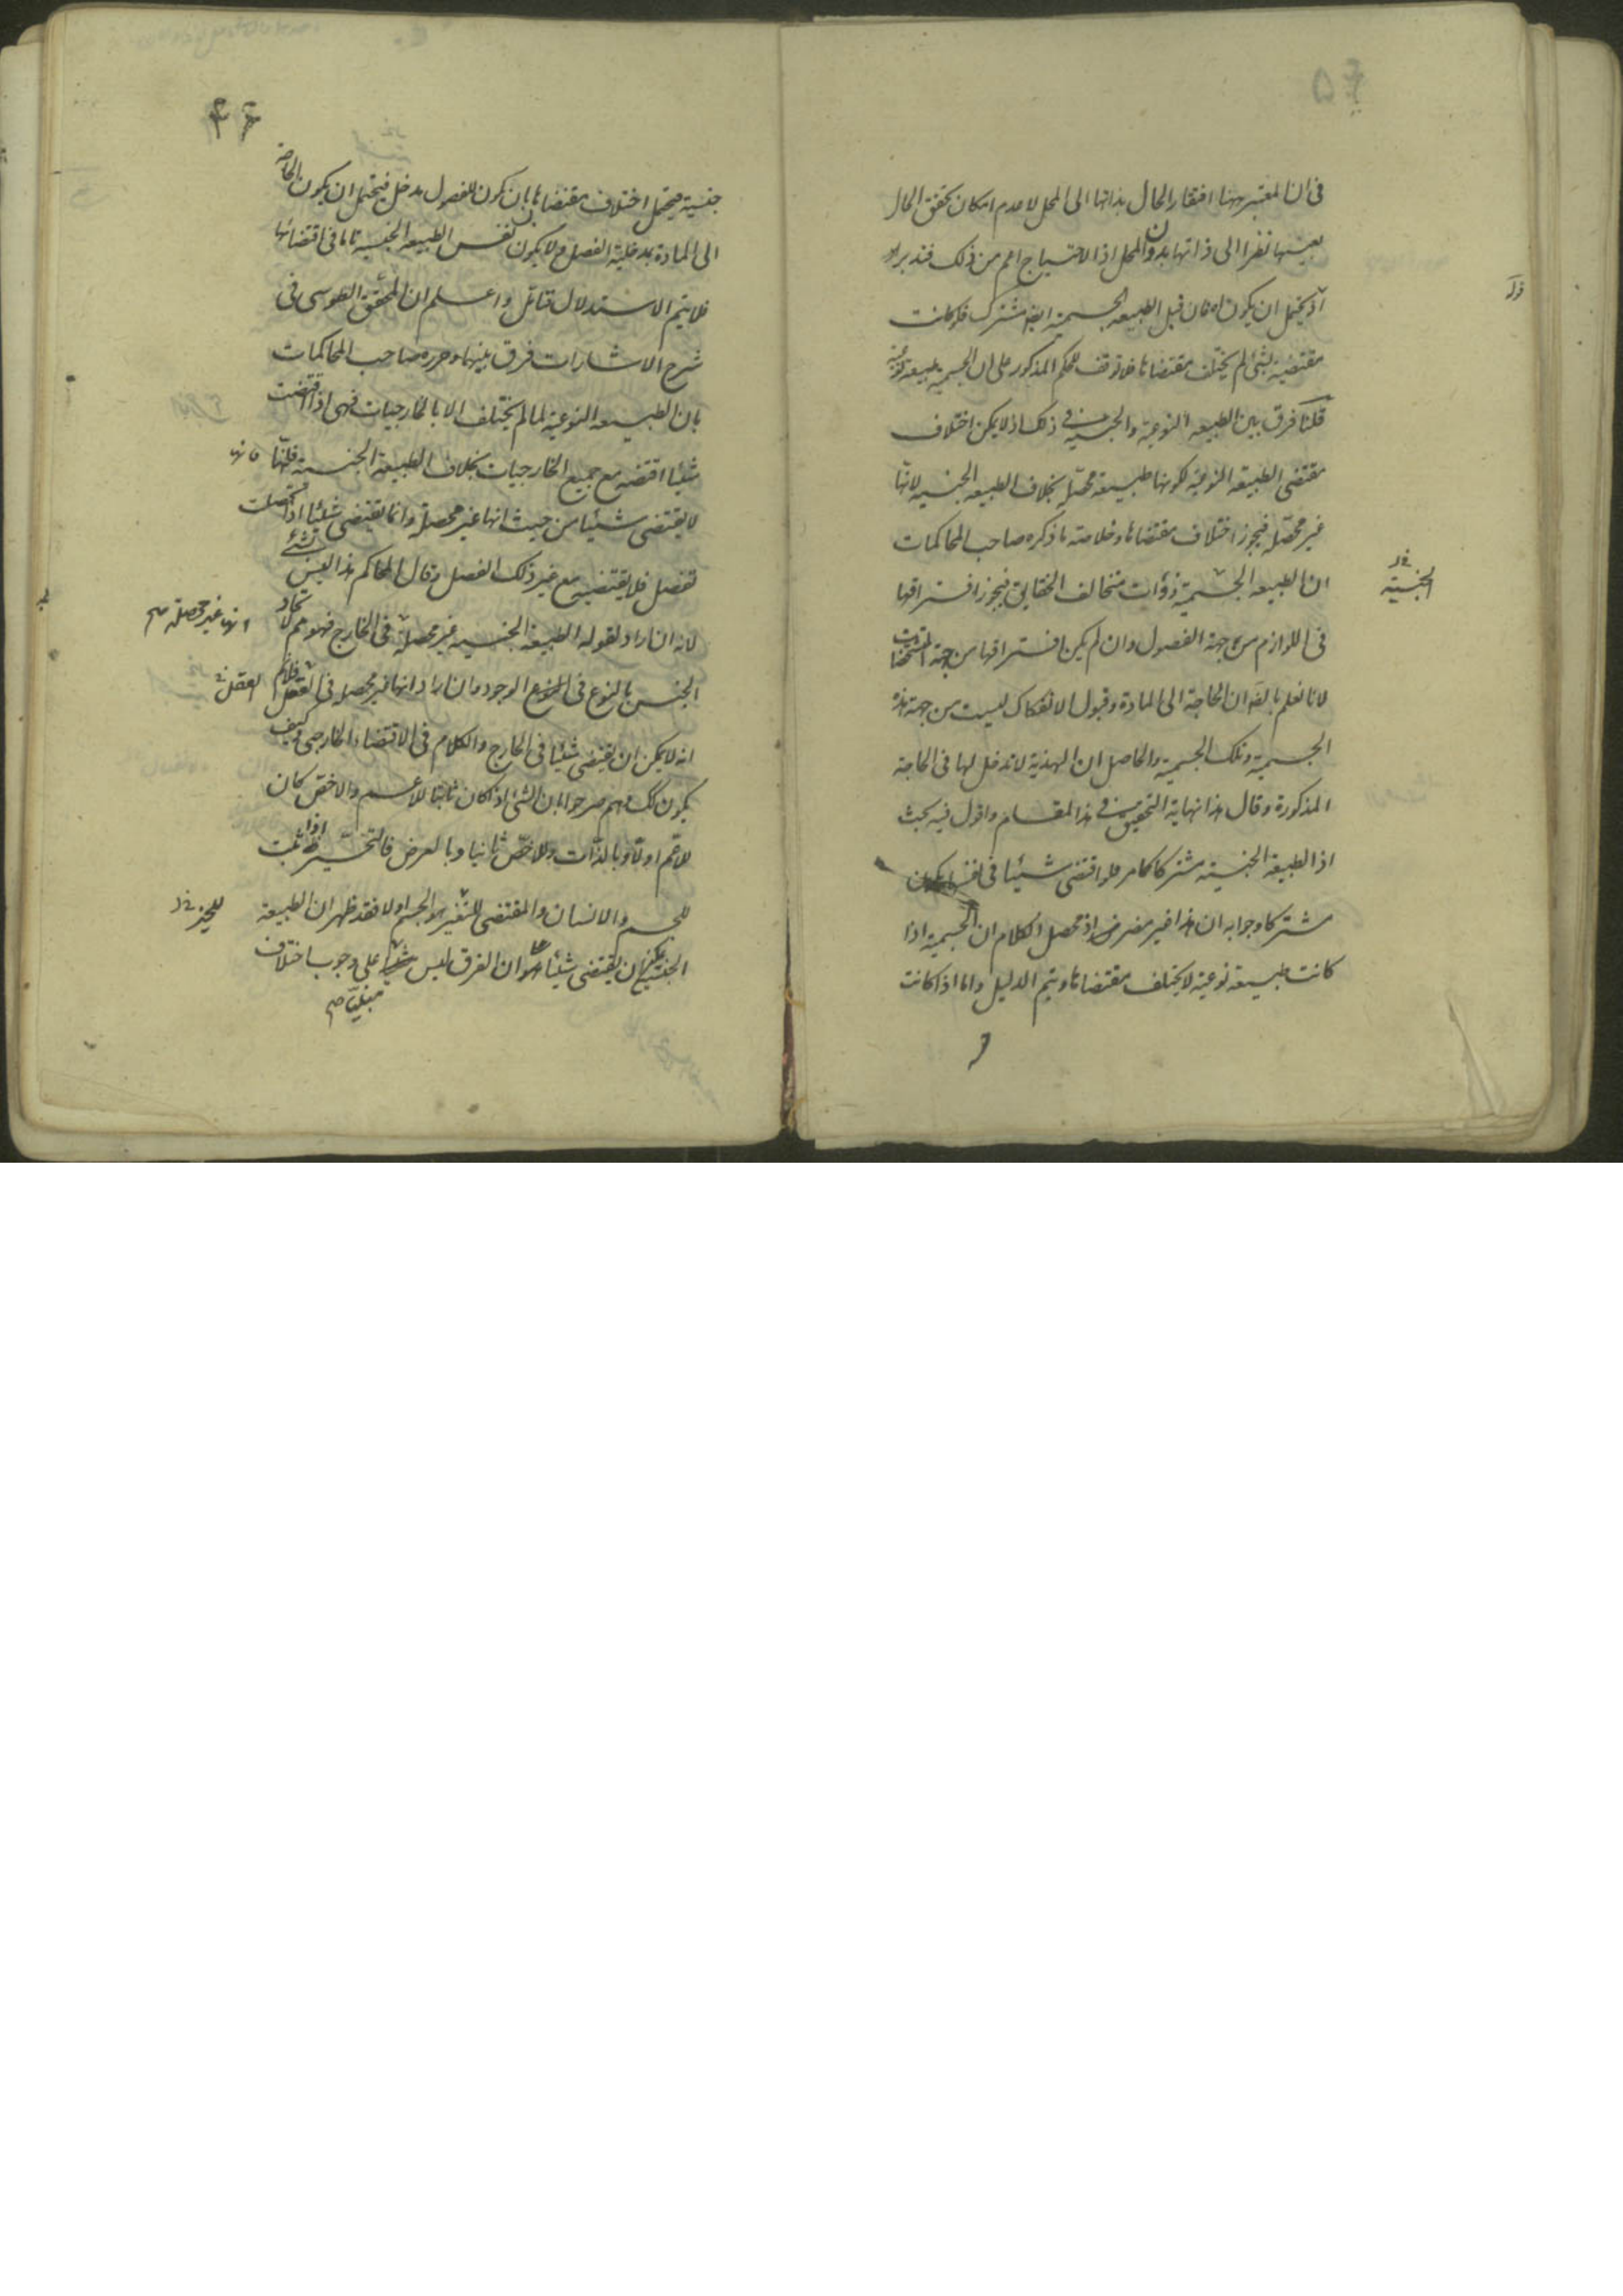 في ان المعتبر ههنا افتقار الحال بذاتها الى المحل لا عدم امكان تحقق الحال
بعينها نظرا الى ذاتها بدون المحل اذ الاحتياج اعم من ذلك فتدبر
اذ يحتمل ان يكون اه فان قيل الطبيعة الجسمية ايضا مشترك فلو كانت
مقتضية لشئ لم يختلف مقتضاها فلا توقف للحكم المذكور على ان الجسمية طبيعة نوعية
قلنا فرق بين الطبيعة النوعية والجنسية في ذلك اذ لا يمكن اختلاف
مقتضى الطبيعة النوعية لكونها طبيعة محصلة بخلاف الطبيعة الجنسية لانها
غير محصلة فيجوز اختلاف مقتضاها وخلاصة ما ذكره صاحب المحاكمات
ان الطبيعة الجسمية ذوات متخالف الحقايق فيجوز افتراقها
الجنسية
في اللوازم من جهة الفصول وان لم يكن افتراقها من جهة المشخصات
لانا نعلم بالضرورة ان الحاجة الى المادة وقبول الانفكاك ليست من جهة هذه
الجسمية وتلك الجسمية والحاصل ان الهذية لا تدخل لها في الحاجة
المذكورة وقال هذا نهاية التحقيق في هذا المقام واقول فيه بحث
اذ الطبيعة الجنسية مشتركا كما مر فلو اقتضى شيئا في نفسها يكون
مشتركا وجوابه ان هذا غير مضر اذ محصل الكلام ان الجسمية اذا
كانت طبيعة نوعية لا يختلف مقتضاها ويتم الدليل واما اذا كانت
جنسية فيحتمل اختلاف مقتضاها بان يكون للفصول مدخل فيحتمل ان يكون الحاجة
الى المادة بمدخلية الفصل ولا يكون نفس الطبيعة الجنسية تاما في اقتضائها
فلا يتم الاستدلال فتامل واعلم ان المحقق الطوسي في
شرح الاشارات فرق بينهما وحرره صاحب المحاكمات
بان الطبيعة النوعية لما لم يختلف الا بالخارجيات فهي اذا اقتضت
شيئا اقتضته مع جميع الخارجيات بخلاف الطبيعة الجنسية فانها
لا يقتضى شيئا من حيث انها غير محصلة وانما تقتضى شيئا اذا تحصلت
بفصل فلا يقتضيه مع غير ذلك الفصل وقال المحاكم هذا ليس بشئ
لانه ان اراد بقوله الطبيعة الجنسية غير محصلة في الخارج فهو مم لاتحاد
انها غير محصلة صح
الجنس بالنوع في الوجود وان اراد انها غير محصلة في العقل فلانم
العقل
انه لا يمكن ان يقتضى شيئا في الخارج والكلام في الاقتضاء الخارجي وكيف
يكون كك وهم صرحوا بان الشئ اذا كان ثابتا للاعم والاخص كان
للاعم اولا وبالذات وللاخص ثانيا وبالعرض فالتحيز اذا ثبت
للجسم والانسان والمقتضى للتحيز هو الجسم اولا فقد ظهر ان الطبيعة
للحيز
الجنسية يمكن ان يقتضى شيئا هو ان الفرق ليس على وجوب اختلاف
مبنيا صح